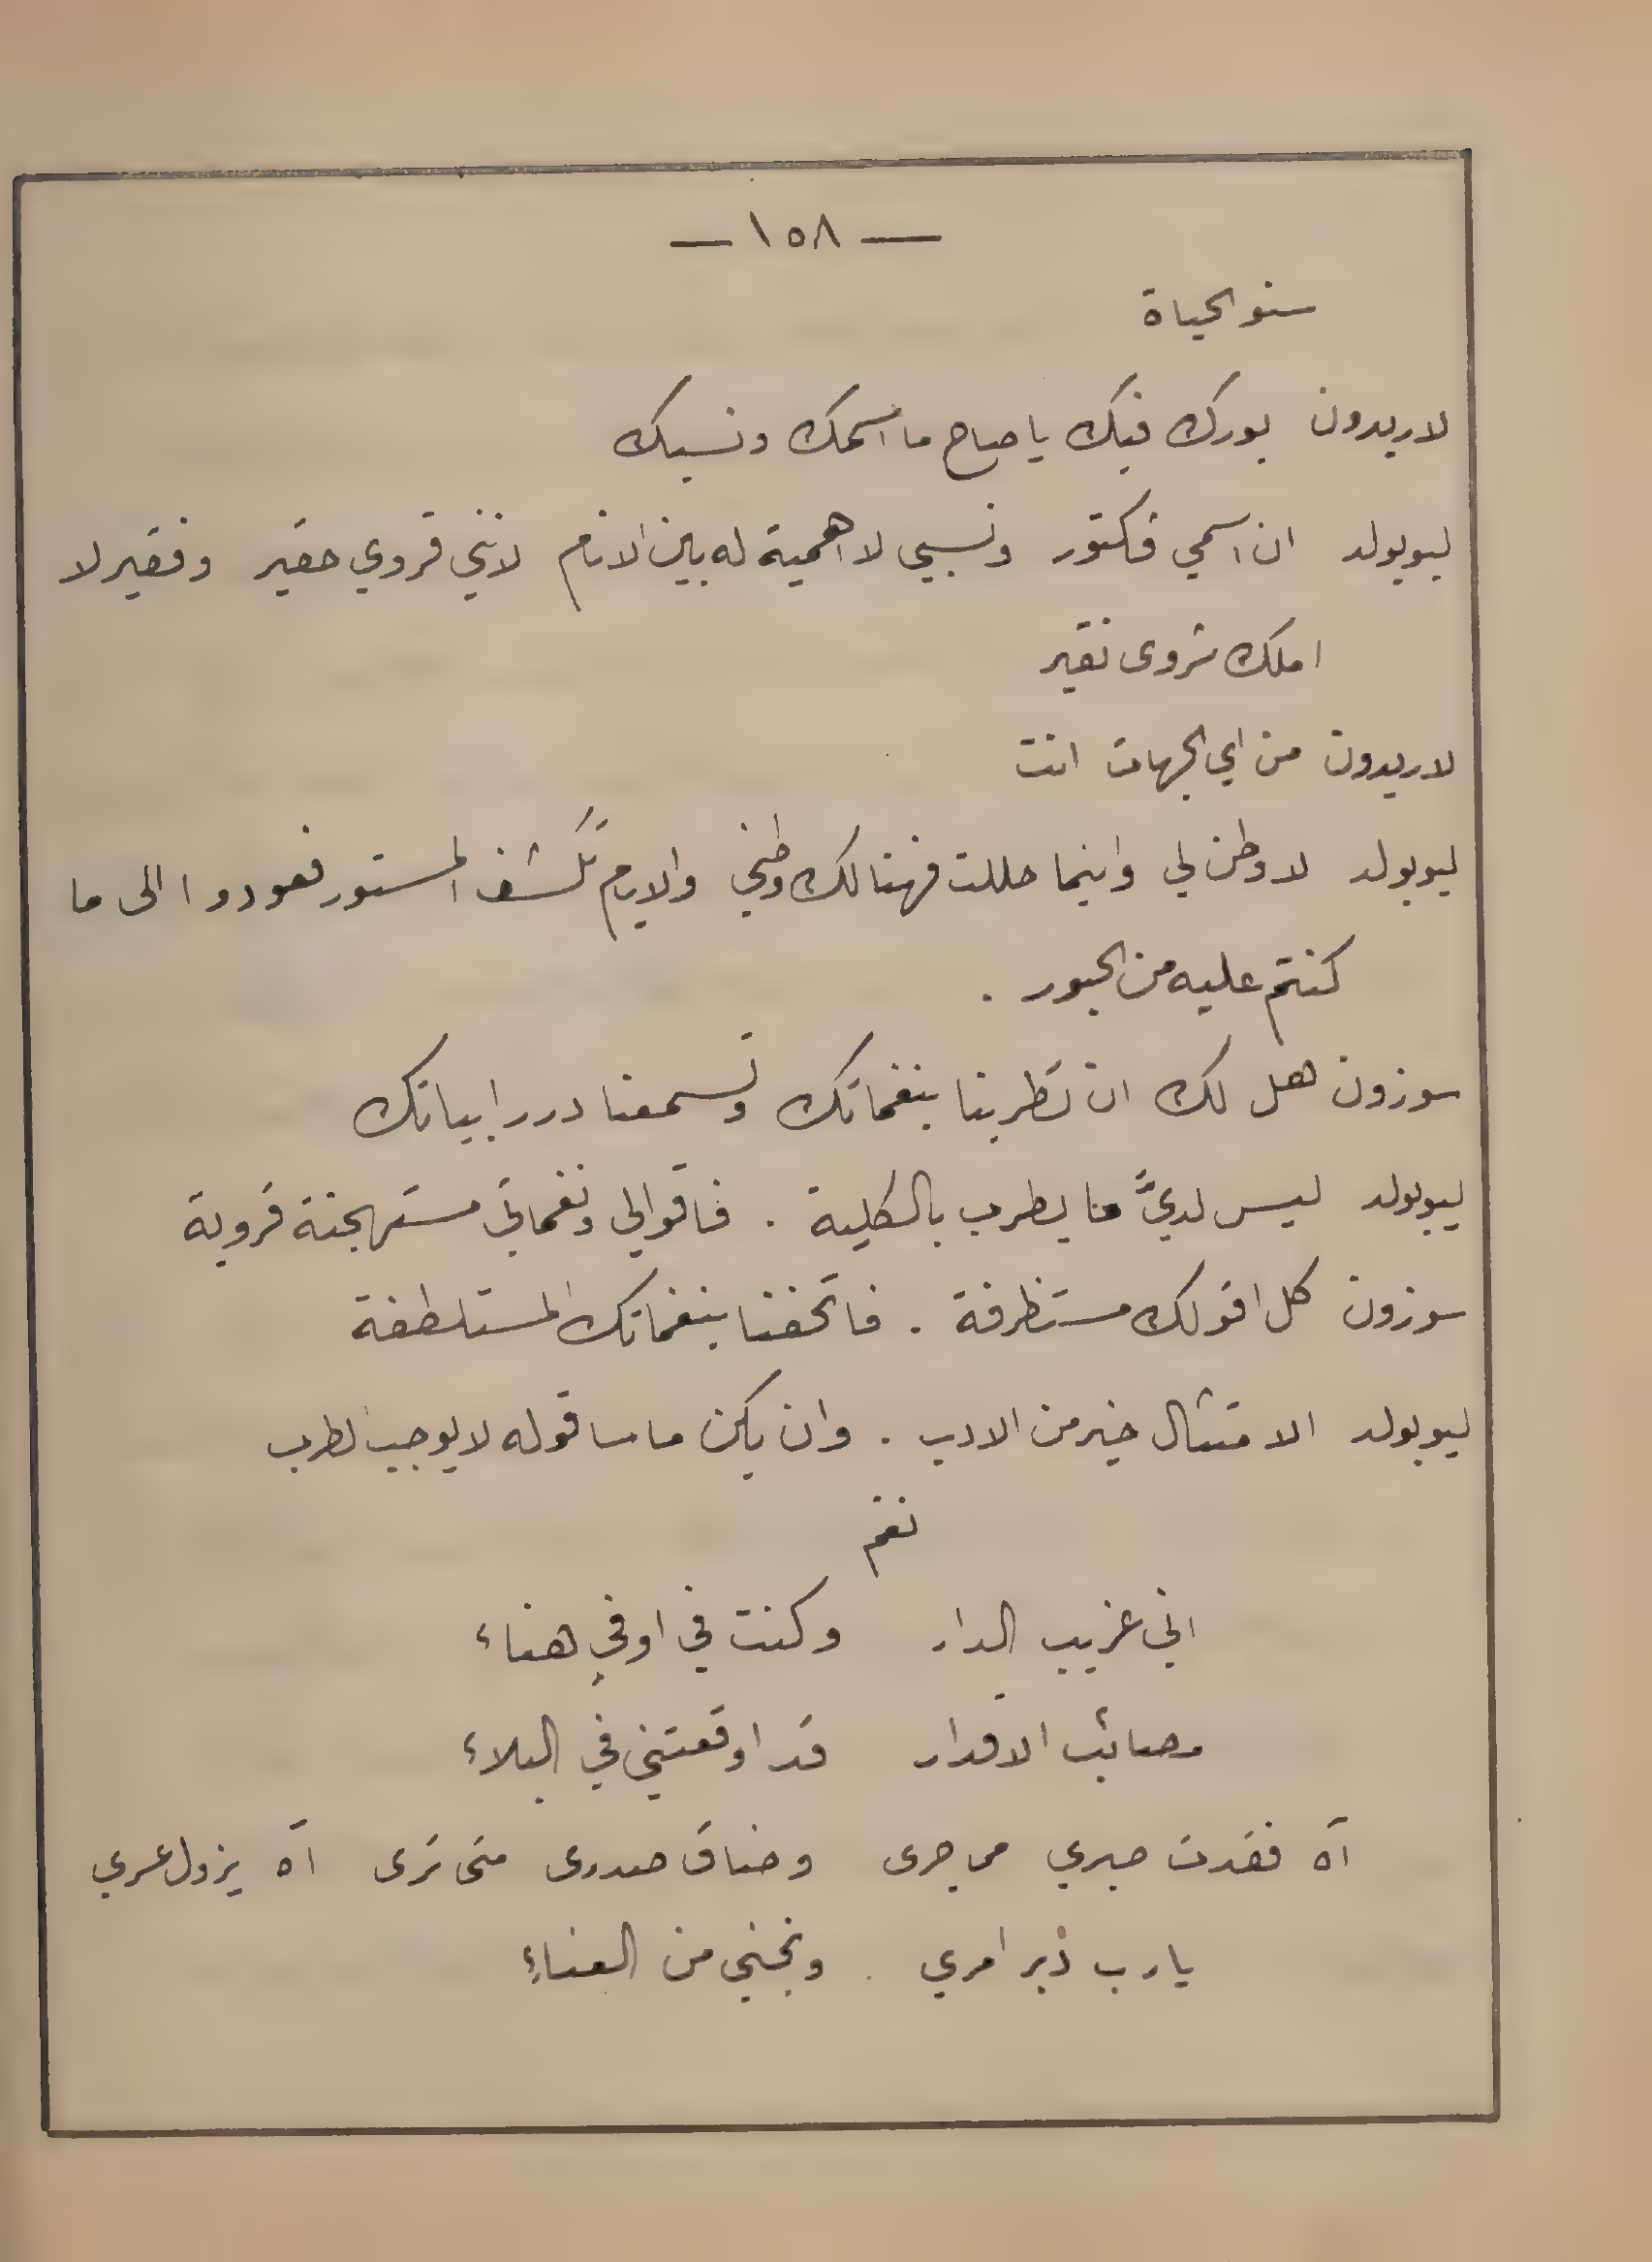 — ١٥٨ —
سنو الحياة
لاريدون بورك فيك يا صاح ما اسمك ونسبك
ليوبولد ان اسمي فكتور ونسبي لا اهمية له بين الانام لانني قروي حقير وفقير لا
املك شروى نقير
لاريدون من اي الجهات انت
ليوبولد لا وطن لي واينما حللت فهنالك وطني والايام تكشف المستور فعودوا الى ما
كنتم عليه من الحبور .
سوزون هل لك ان تطربنا بنغماتك وتسمعنا درر ابياتك
ليوبولد ليس لديَّ ما يطرب بالكلية . فاقوالي ونغماتي مستهجنة قروية
سوزون كل اقولك مستظرفة . فاتحفنا بنغماتك المستلطفة
ليوبولد الامتثال خير من الادب . وان يكن ما ساقوله لا يوجب الطرب
نغم
اني غريب الدار وكنت في اوفي هناء
مصائب الاقدار قد اوقعتني في البلاء
آه فقدت صبري مما جرى وضاق صدري متى ترى آه يزول عسري
يا رب دبر امري ونجني من العناء